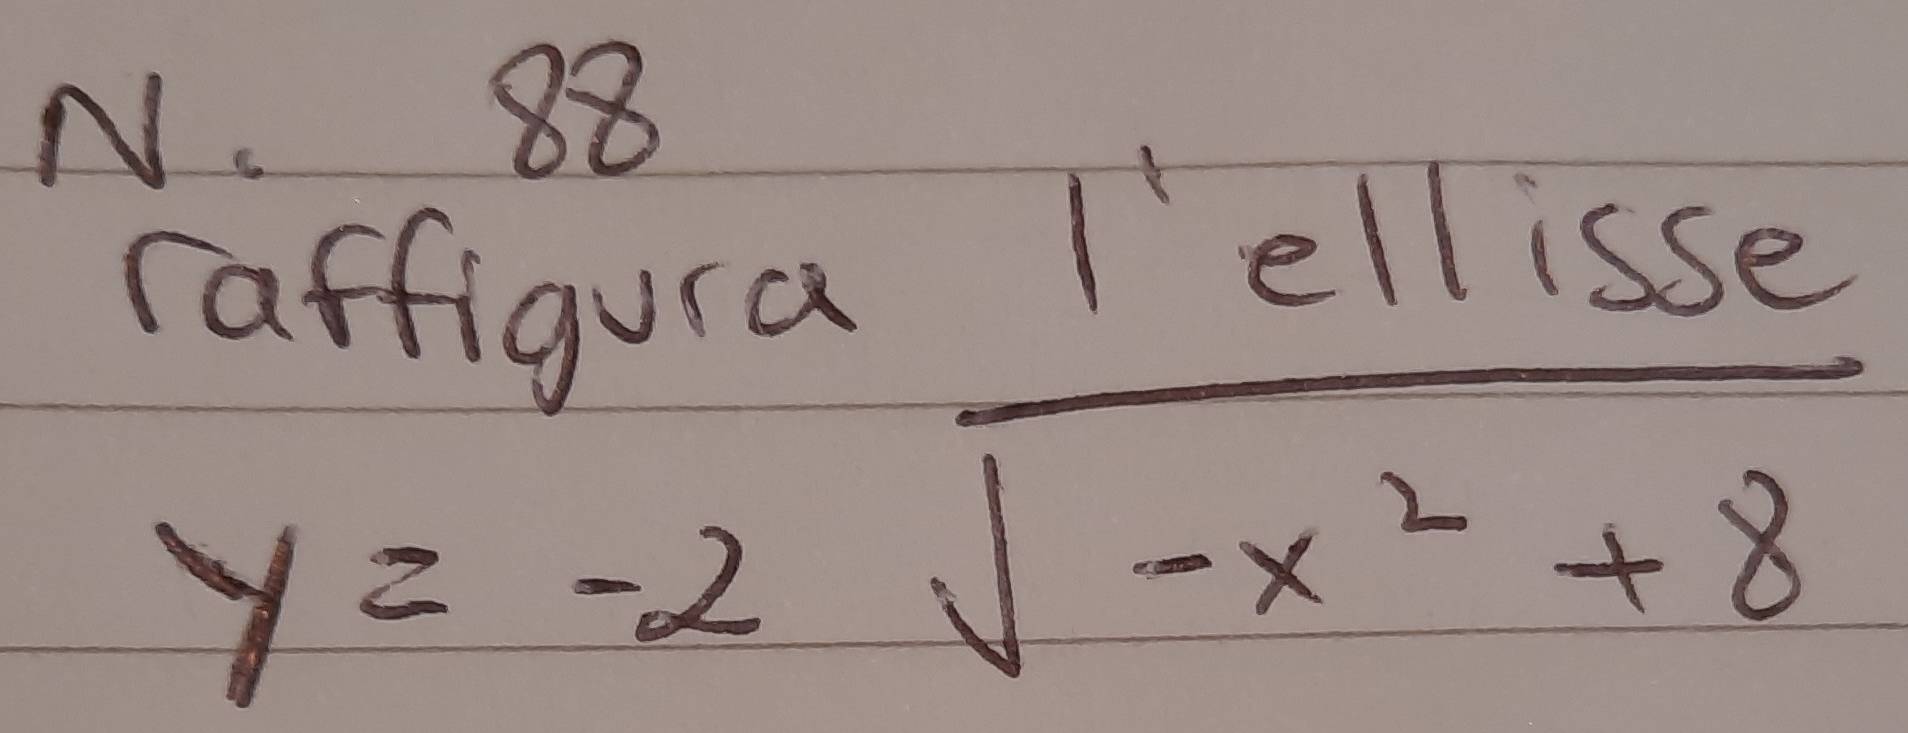 N. 88
raffigura l'ellisse
y = -2 √-x² + 8